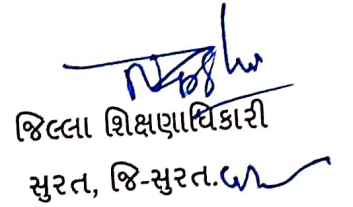 જિલ્લા શિક્ષણાધિકારી
સુરત, જિ-સુરત.